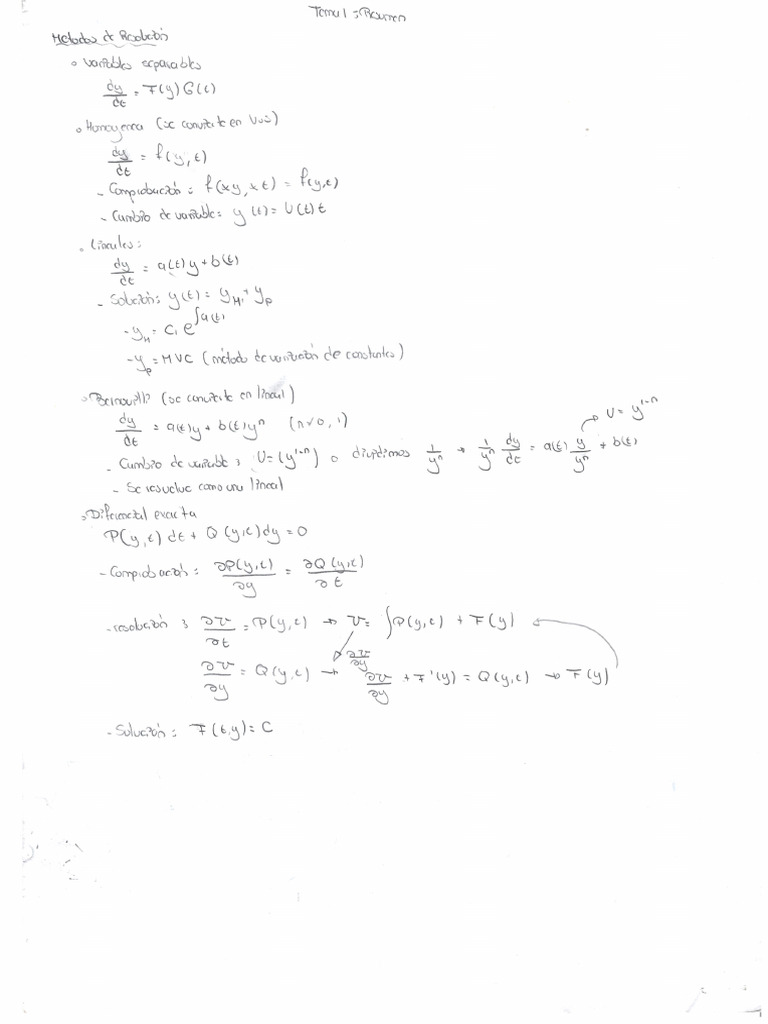 Tema 1: Resumen
Métodos de Resolución
◦ Variables separables
dy/dt = F(y) G(t)
◦ Homogenea (se convierte en VVSS)
dy/dt = f(y, t)
- Comprobación: f(xy, xt) = f(y,t)
- Cambio de variable: y(t) = U(t) t
◦ Lineales:
dy/dt = a(t)y + b(t)
- Solución: y(t) = y_H + y_p
- y_H = C₁ e^∫a(t)
- y_p = MVC (método de variación de constantes)
◦ Bernoulli (se convierte en lineal)
dy/dt = a(t)y + b(t)yⁿ (n≠0, 1)
- Cambio de variable: U = (y¹⁻ⁿ) o dividimos 1/yⁿ → 1/yⁿ dy/dt = a(t) y/yⁿ + b(t) → U = y¹⁻ⁿ
- Se resuelve como una lineal
◦ Diferencial exacta
P(y, t) dt + Q(y,t) dy = 0
- Comprobación: ∂P(y,t)/∂y = ∂Q(y,t)/∂t
- resolución: ∂V/∂t = P(y,t) → V = ∫P(y,t) + F(y)
∂V/∂y = Q(y,t) → ∂V/∂y
∂V/∂y + F'(y) = Q(y,t) → F(y)
- Solución: F(t,y) = C